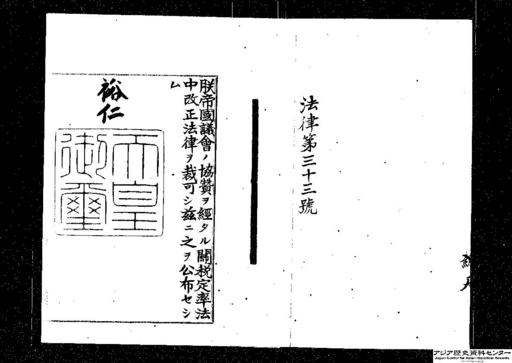 法律第三十三號
朕帝國議會ノ協贊ヲ經タル關稅定率法
中改正法律ヲ裁可シ茲ニ之ヲ公布セシ
ム
裕仁
天皇
御璽
アジア歴史資料センター
Japan Center for Asian Historical Records